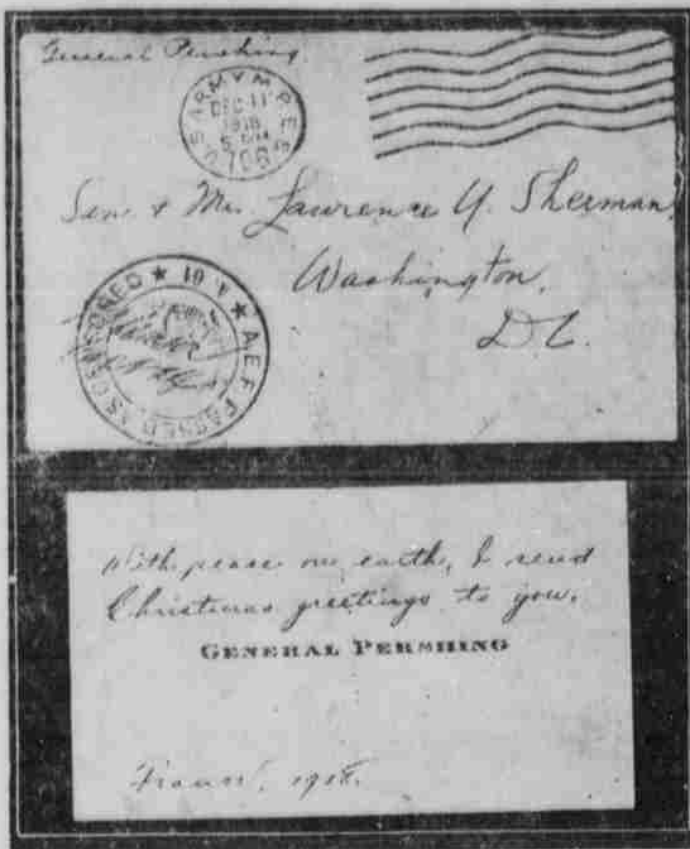 General Pershing
U.S. ARMY M.P.E.S.
DEC 11
1918
5 PM
706
Sen. & Mrs. Lawrence Y. Sherman,
Washington,
D.C.
A.E.F. PASSED AS CENSORED
With peace on earth, I send
Christmas greetings to you.
GENERAL PERSHING
France, 1918.